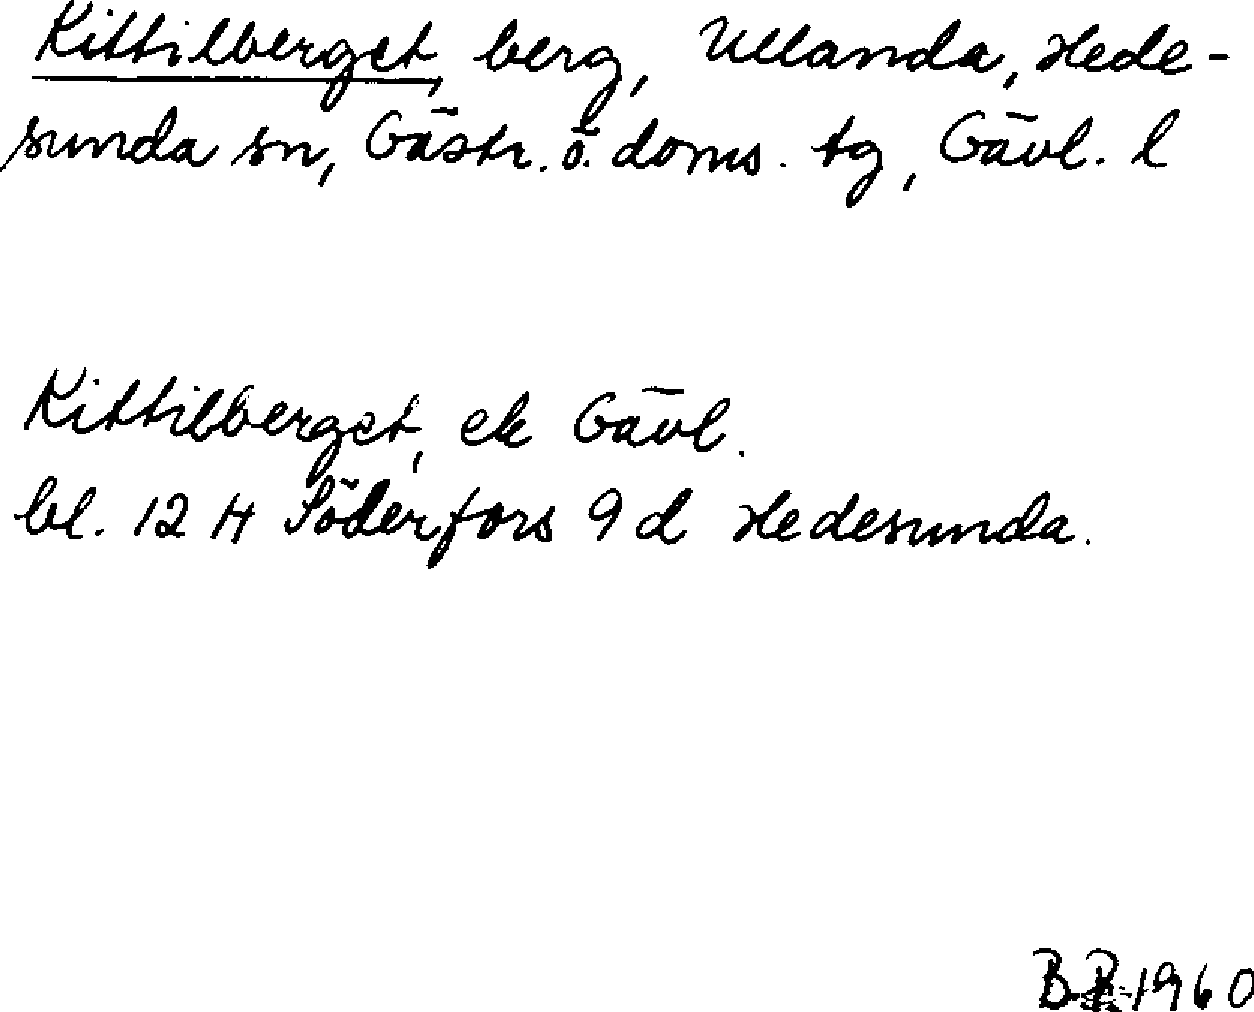 Kittilberget, berg, Ullanda, Hede-
sunda sn, Gästr. ö. doms. tg, Gävl. l
Kittilberget, ek Gävl.
bl. 12 H Söderfors 9 d Hedesunda.
B.R 1960